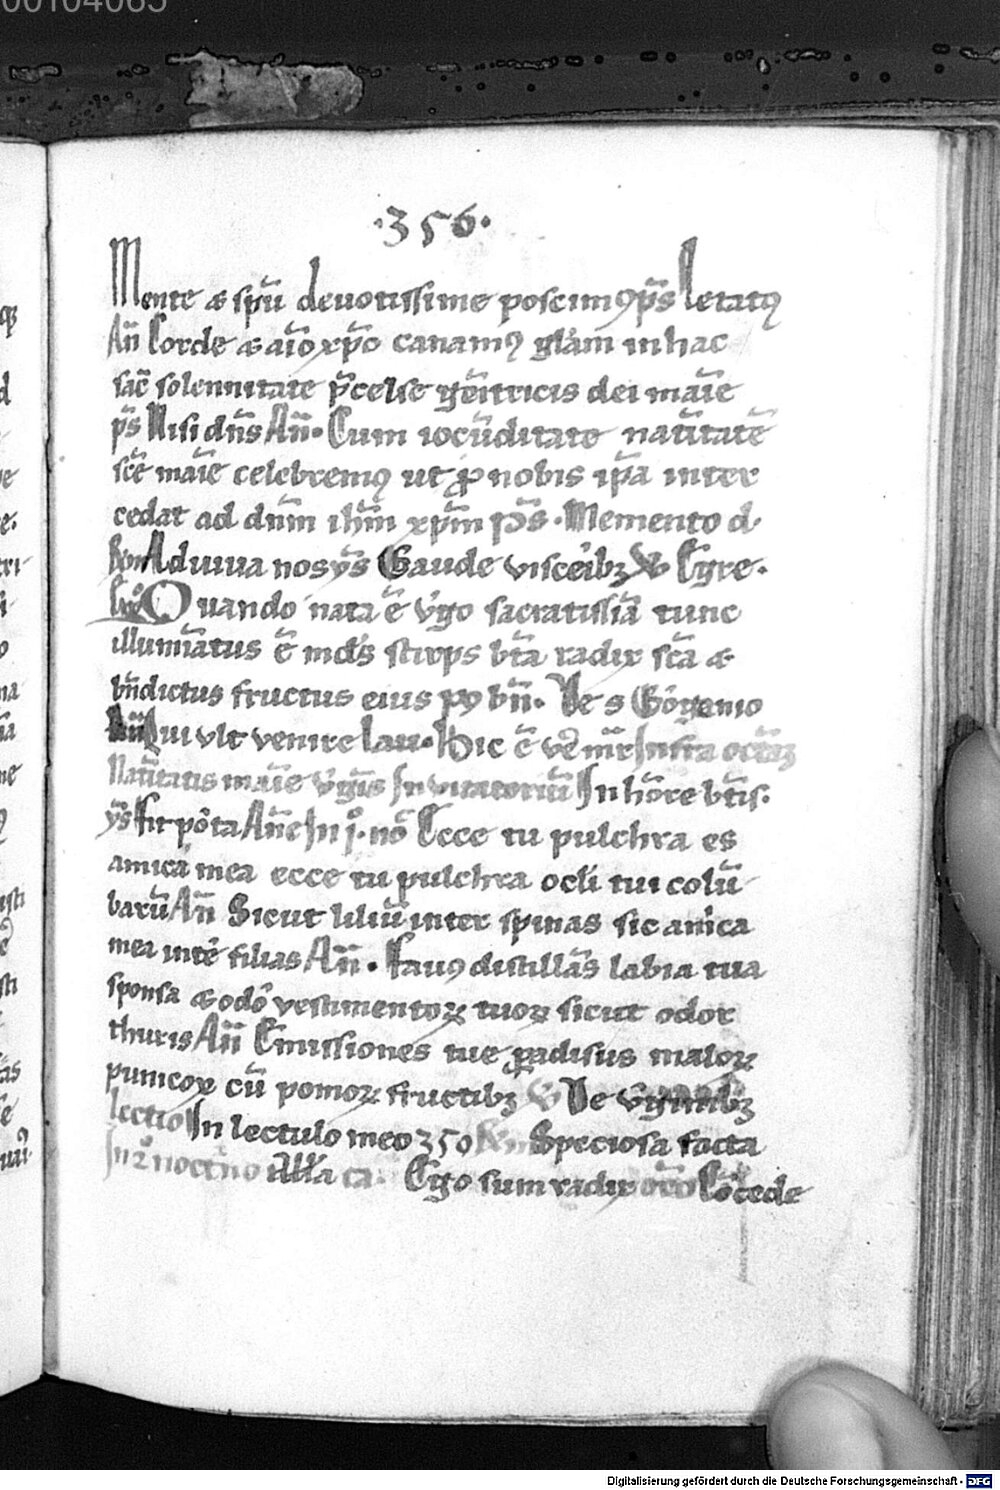 00104065
·356·
Mente ⁊ spū deuotissime poscimꝰ p̄s Letatꝰ
An̄ Corde ⁊ aīo xp̄o canamꝰ glām in hac
sac̄ solennitate p̄celse gēitricis dei maīe
p̄s Nisi dn̄s An̄. Cum iocūditate natīitatē
sc̄e maīe celebremꝰ ut ꝓ nobis ip̄a inter
cedat ad dn̄m ih̄m xp̄m p̄s. Memento d.
Aduiua nos ym̄s Gaude visceribꝫ Egre.
Quando nata ē v̄go sacratissiā tunc
illumīatus ē mūds stirps bt̄a radix sc̄a ⁊
bn̄dictus fructus eius bn̄. De s Gorgonio
An̄ Qui vlt venire Lau. Hic ē v̄e mr̄ Infra octāꝫ
Natīitatis maīe v̄gīs In vitatoriū In hōre bt̄is.
ym̄s fit pōta An̄e In j. no Ecce tu pulchra es
amica mea ecce tu pulchra ocli tui colū
barū An̄ Sicut liliū inter spinas sic amica
mea int̄ filias An̄. Fauꝰ distillās labia tua
sponsa ⁊ odō vestimentoꝝ tuoꝝ sicut odor
thuris An̄ Emissiones tue ꝑadisus maloꝝ
punicoꝝ cū pomoꝝ fructibꝫ De v̄ginibꝫ
lectio In lectulo meo 350 Speciosa facta
In 2 nocturno Alla ca. Ego sum radix oro Cōcede
Digitalisierung gefördert durch die Deutsche Forschungsgemeinschaft - DFG